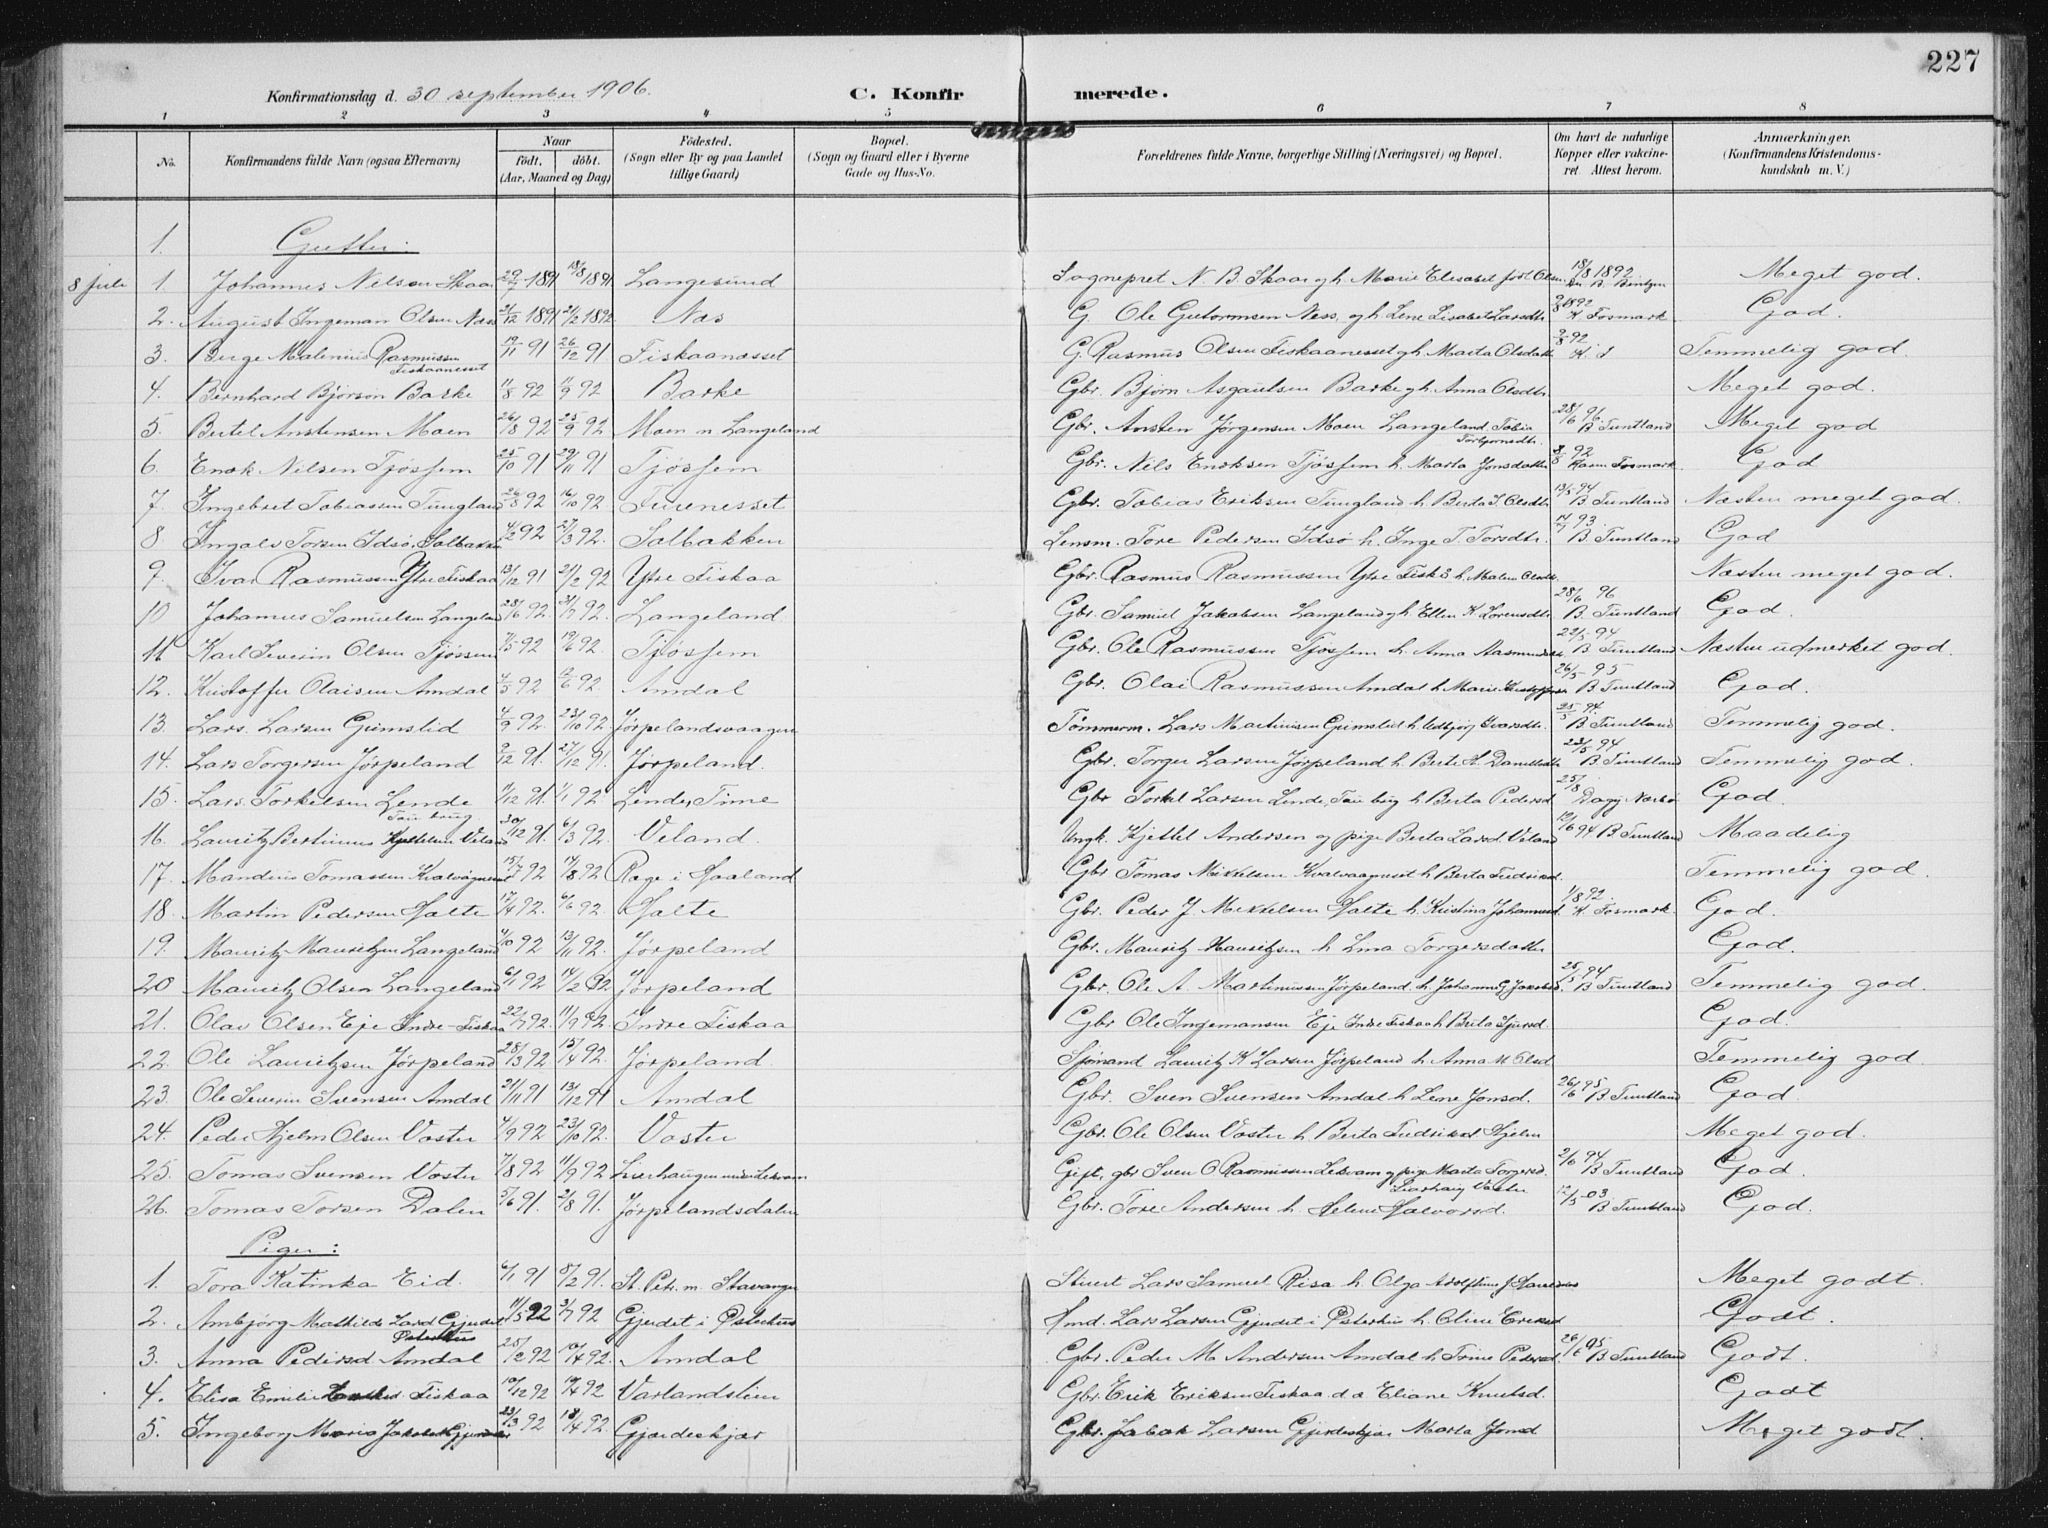 227
Konfirmationsdag d. 30 september 1906.
C. Konfirmerede.
1 2 3 4 5 6 7 8
No. Konfirmandens fulde Navn (ogsaa Efternavn) Naar født. døbt. (Aar, Maaned og Dag) Fødested. (Sogn eller By og paa Landet tillige Gaard) Bopæl. (Sogn og Gaard eller i Byerne Gade og Hus-No. Forældrenes fulde Navne, borgerlige Stilling (Næringsvei) og Bopæl. Om havt de naturlige Kopper eller vakcineret. Attest herom. Anmærkninger. (Konfirmandens Kristendomskundskab m. V.)
1. Gutter:
8 juli 1. Johannes Nilsen Skaar 29/7 1891 18/8 1891 Langesund Sognepret N. B. Skaar gh. Marie Elisabet født Olsen 18/8 1892 Meget god.
2. August Ingeman Olsen Næss 21/12 1891 21/2 1892. Næs G. Ole Gutormsen Ness. gh. Lene Lisabet Larsdtr. 2/8 1892 K Fosmark. God.
3. Berge Malenius Rasmussen Fiskaanesset 19/11 91 26/12 91 Fiskaanæsset G. Rasmus Olsen Fiskaanesset gh. Marta Olsdatr 2/8 92 Temmelig god.
4. Bernhard Bjørson Barke 11/8 92 11/9 92 Barke Gbr. Bjørn Asgautsen Barke gh. Anna Olsdtr. Meget god.
5. Bertel Anstensen Moen 26/8 92 25/9 92. Moen n Langeland Gbr. Ansten Jørgensen Moen Langeland, Tobia Torbjørnsdtr. 28/6 96 B Tuntland Meget god
6. Enok Nilsen Tjøssem 25/10 91 29/11 91 Tjøssem Gbr. Nils Enoksen Tjøssem h. Marta Jonsdatter 8/8 92 Fosmark. God
7. Ingebret Tobiassen Tungland 26/8 92 16/10 92. Furenesset Gbr. Tobias Eriksen Tungland h. Berta S. Olsdtr. 13/5 94 B Tuntland Næsten meget god.
8 Ingalv Torsen Idsø, Solbakken 4/2 92 27/3 92. Solbakken Lensm. Tore Pedersen Idsø h. Inge T. Torsdtr. 17/7 93. B. Tuntland God
9. Ivar Rasmussen Ytre Fiskaa 13/12 91 21/2 92 Ytre Fiskaa Gbr. Rasmus Rasmussen Ytre Fiskå h. Malene Olsdtr. Næsten meget god.
10 Johannes Samuelsen Langeland 28/6 92. 31/7 92. Langeland. Gbr. Samuel Jakobsen Langeland gh Ellen K Lorensdtr 28/6 96 B. Tuntland God.
11 Karl Severin Olsen Tjøssem 7/5 92 19/6 92. Tjøssem Gbr. Ole Rasmussen Tjøssem h. Anna Rasmusdtr 22/5 94 B Tuntland Næsten udmerket god.
12. Kristoffer Olaisen Amdal 4/5 92 12/6 92. Amdal Gbr. Olai Rasmussen Amdal h Marie Kristoffersd 26/5 95 B Tuntland God.
13. Lars Larsen Grimslid 4/9 92. 23/10 92. Jørpelandsvaagen Tømmerm. Lars Martinsen Grimslid h Udbjørg Ivarsdtr. 25/5 94. B Tuntland Temmelig god.
14. Lars Torgersen Jørpeland 9/12 91. 27/12 91. Jørpeland. Gbr. Torger Larsen Jørpeland h. Berte K. Danielsdtr 23/5 94 B Tuntland Temmelig god.
15. Lars Torkelsen Lende Tau brug. 7/12 91. 1/1 92 Lende, Time Gbr Torkel Larsen Lende, Tau brug h Berta Pedersd. 25/8 Nærbø God.
16. Lauritz Bertinius Kjettelsen Veland 30/12 91. 6/3 92. Veland. Ungk. Kjettel Andersen og pige Berta Larsd. Veland 12/6 94 B Tuntland Maadelig
17. Mandius Tomassen Kvalvågneset 15/7 92 14/8 92 Rage i Haaland Gbr Tomas Mikkelsen Kvalvaagneset h Berta Fredriksd. Temmelig god.
18. Martin Pedersen Halte 17/4 92. 6/6 92. Halte Gbr. Peder J. Mikkelsen Halte h. Kristina Johannesd. 1/8 92. K Fosmark. God.
19. Mauritz Mauritzsen Langeland 4/10 92 13/11 92. Jørpeland Gbr. Mauritz Mauritzsen h Lina Torgersdatter God.
20 Mauritz Olsen Langeland 6/1 92 14/2 92 Jørpeland Gbr. Ole A. Martinussen Jørpeland h. Johanne G Jakobsd. 25/5 94 B Tuntland Temmelig god.
21. Olav Olsen Eje Indre-Fiskaa 22/7 92. 11/9 92 Indre Fiskaa Gbr Ole Ingemansen Eje Indre Fiskaa h Berta Sjursd. God.
22. Ole Lauritzsen Jørpeland 28/3 92 15/4 92. Jørpeland Sjømand Lauritz K Larsen Jørpeland h. Anna M. Olsd Temmelig god.
23. Ole Severin Svensen Amdal 21/11 91 13/12 91 Amdal Gbr. Sven Svensen Amdal h Lene Jonsd. 26/6 95 B Tuntland God.
24. Peder Hjelm Olsen Voster 4/9 92 23/10 92. Voster Gbr. Ole Olsen Voster h. Berta Fredriksd Hjelm Meget god.
25. Tomas Svensen Voster 7/8 92 11/9 92 Gift, gbr Sven O Rasmussen Lekvam og pige Marta Torgersd. Voster 2/6 94 B Tuntland God.
26. Tomas Torsen Dalen 5/6 91. 2/8 91. Jørpelandsdalen Gbr. Tore Andersen h. Helene Halvorsd. 12/5 03. B Tuntland God.
Piger:
1. Tora Katinka Eid. 6/1 91 8/2 91. St. Petr. m. Stavanger Stuert Lars Samuel Risa h. Olga Adolfine Meget godt.
2. Ambjørg Mathilde Larsd Gjerdet Østerhus 11/5 92 3/7 92 Gjerdet i Østerhus Smd. Lars Larsen Gjerdet i Østerhus h. Oline Eriksd Godt.
3. Anna Pedersd Amdal 25/2 92 10/4 92. Amdal Gbr. Peder M Andersen Amdal h Trine Pedersd. 26/6 95 B Tuntland Godt.
4. Elisa Emilie Eriksd. Fiskaa 10/12 92 Varlandslien Gbr. Erik Eriksen Fiskaa. d.a Eliane Knutsd. Godt
5. Ingeborg Maria Jakobsd Gjerde 23/3 92 18/4 92. Gjærdeskjær Gbr. Jakob Larsen Gjerdeskjær Marta Jonsd Meget godt.